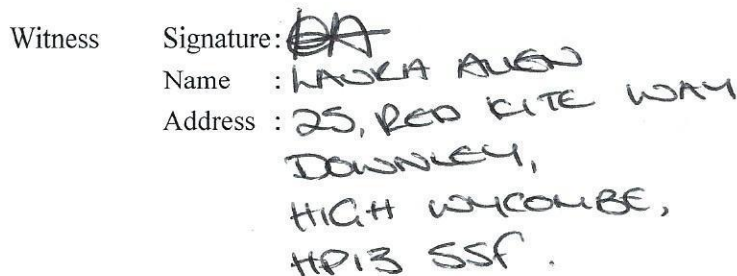 Witness Signature:
Name : LAURA ALLEN
Address : 25, RED KITE WAY
DOWNLEY,
HIGH WYCOMBE,
HP13 5SF.